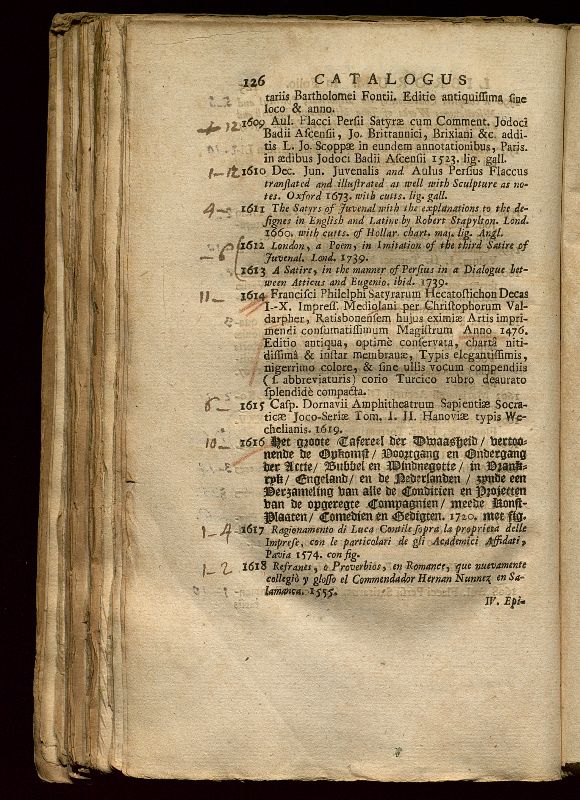 126 CATALOGUS
tariis Bartholomei Fontii. Editio antiquissima sine
loco & anno.
+ 12 1609 Aul. Flacci Persii Satyræ cum Comment. Jodoci
Badii Ascensii, Jo. Brittannici, Brixiani &c. addi-
tis L. Jo. Scoppæ in eundem annotationibus, Paris.
in ædibus Jodoci Badii Ascensii 1523. lig. gall.
1-12 1610 Dec. Jun. Juvenalis and Aulus Persius Flaccus
translated and illustrated as well with Sculpture as no-
tes. Oxford 1673. with cutts. lig. gall.
4 - 1611 The Satyrs of Juvenal with the explanations to the de-
signes in English and Latine by Robert Stapylton. Lond.
1660. with cutts. of Hollar. chart. maj. lig. Angl.
- 6 1612 London, a Poem, in Imitation of the third Satire of
Juvenal. Lond. 1739.
1613 A Satire, in the manner of Persius in a Dialogue bet-
ween Atticus and Eugenio. ibid. 1739.
11 - 1614 Francisci Philelphi Satyrarum Hecatostichon Decas
I.-X. Impress. Mediolani per Christophorum Val-
darpher, Ratisbonensem hujus eximiæ Artis impri-
mendi consumatissimum Magistrum Anno 1476.
Editio antiqua, optimè conservata, chartâ niti-
dissimâ & instar membranæ, Typis elegantissimis,
nigerrimo colore, & sine ullis vocum compendiis
( s. abbreviaturis) corio Turcico rubro deaurato
splendidè compacta.
6 - 1615 Casp. Dornavii Amphitheatrum Sapientiæ Socra-
ticæ Joco-Seriæ Tom. I. II. Hanoviæ typis We-
chelianis. 1619.
10 - 1616 Het groote Tafereel der Dwaasheid / vertoo-
nende de Opkomst / Voortgang en Ondergang
der Actie / Bubbel en Windnegotie / in Vrank-
ryk / Engeland / en de Nederlanden / zynde een
Verzameling van alle de Conditien en Projecten
van de opgeregte Compagnien / meede Konst-
Plaaten / Comedien en Gedigten. 1720. met fig.
1-4 1617 Ragionamento di Luca Contile sopra la proprieta delle
Imprese, con le particolari de gli Academici Affidati,
Pavia 1574. con fig.
1-2 1618 Refranes, o Proverbios, en Romance, que nuevamente
collegiò y glosso el Commendador Hernan Nunnez en Sa-
lamanca. 1555.
IV. Epi-